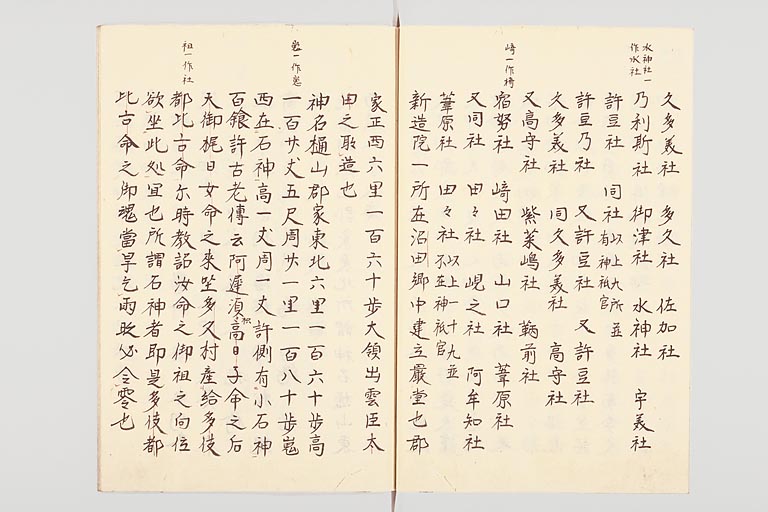 水神社一
作水社
久多美社　多久社　佐加社
乃利斯社　御津社　水神社　宇義社
許豆社　同社以上九所並有神祇官
許豆乃社　又許豆社　又許豆社
久多美社　同久多美社　高守社
又高守社　紫菜嶋社　鞆前社
﨑一作椅
宿努社　﨑田社　山口社　葦原社
又同社　田々社　峴之社　阿牟知社
葦原社　田々社以上一十九並不在神祇官
新造院一所在沼田郷中建立嚴堂也郡
家正西六里一百六十歩大領出雲臣太
田之所造也
神名樋山郡家東北六里一百六十歩高
嵬一作峞
一百廿丈五尺周廿一里一百八十歩嵬
西在石神高一丈周一丈許側有小石神
百餘許古老傳云阿遅須枳高日子命之后
天御梶日女命之來坐多久村産給多伎
祖一作社
都比古命尓時教詔汝命之御祖之向位
欲坐此処宜也所謂石神者即是多伎都
比古命之御魂當旱乞雨時必令零也